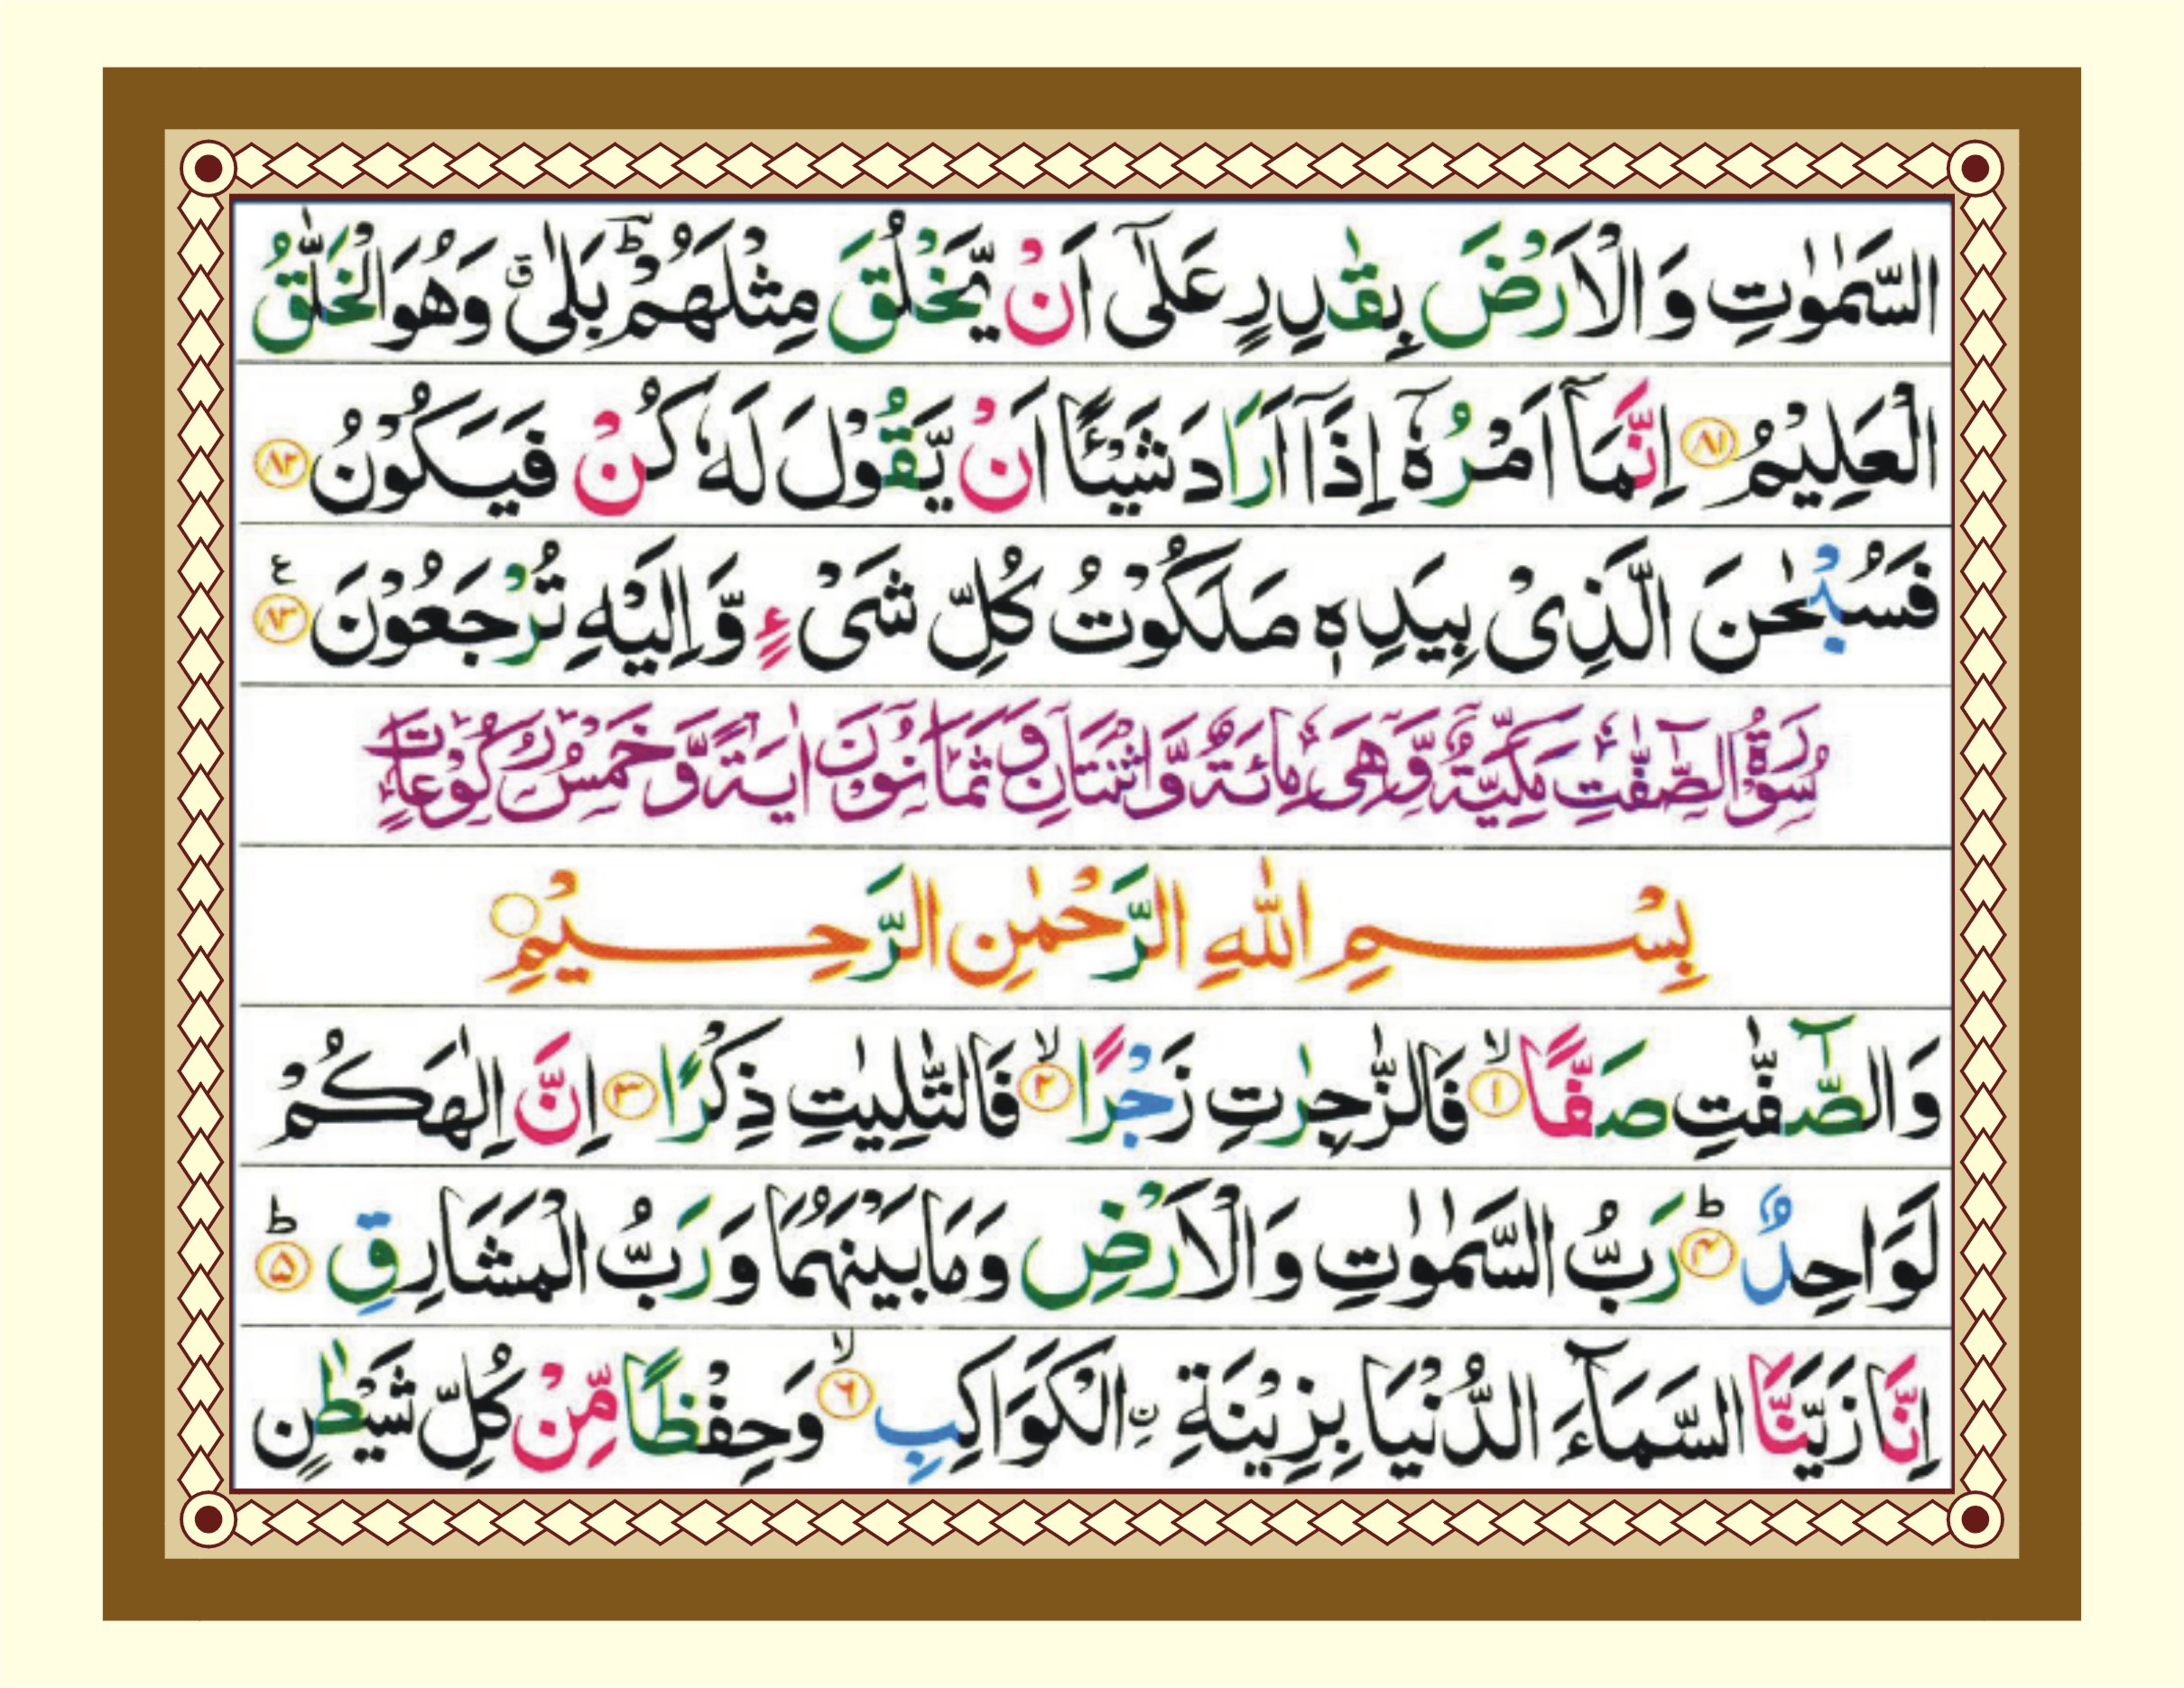 السَّمٰوٰتِ وَ الْاَرْضَ بِقٰدِرٍ عَلٰۤى اَنْ یَّخْلُقَ مِثْلَهُمْؕ بَلٰىۗ وَهُوَ الْخَلّٰقُ
الْعَلِیْمُ ﴿۸۱﴾ اِنَّمَاۤ اَمْرُهٗۤ اِذَاۤ اَرَادَ شَیْـًٔا اَنْ یَّقُوْلَ لَهٗ كُنْ فَیَكُوْنُ ﴿۸۲﴾
فَسُبْحٰنَ الَّذِیْ بِیَدِهٖ مَلَكُوْتُ كُلِّ شَیْءٍ وَّ اِلَیْهِ تُرْجَعُوْنَ ﴿۸۳﴾ ع
سُوْرَةُ الصّٰٓفّٰتِ مَكِّیَّةٌ وَّهِیَ مِائَةٌ وَّاثْنَتَانِ وَّ ثَمَانُوْنَ اٰیَةً وَّ خَمْسُ رُكُوْعَاتٍ
بِسْمِ اللّٰهِ الرَّحْمٰنِ الرَّحِیْمِ
وَالصّٰٓفّٰتِ صَفًّا ﴿۱﴾ۙ فَالزّٰجِرٰتِ زَجْرًا ﴿۲﴾ۙ فَالتّٰلِیٰتِ ذِكْرًا ﴿۳﴾ اِنَّ اِلٰهَكُمْ
لَوَاحِدٌ ﴿۴﴾ؕ رَبُّ السَّمٰوٰتِ وَالْاَرْضِ وَمَا بَیْنَهُمَا وَرَبُّ الْمَشَارِقِ ﴿۵﴾ؕ
اِنَّا زَیَّنَّا السَّمَآءَ الدُّنْیَا بِزِیْنَةِ ن ِالْكَوَاكِبِ ﴿۶﴾ۙ وَحِفْظًا مِّنْ كُلِّ شَیْطٰنٍ